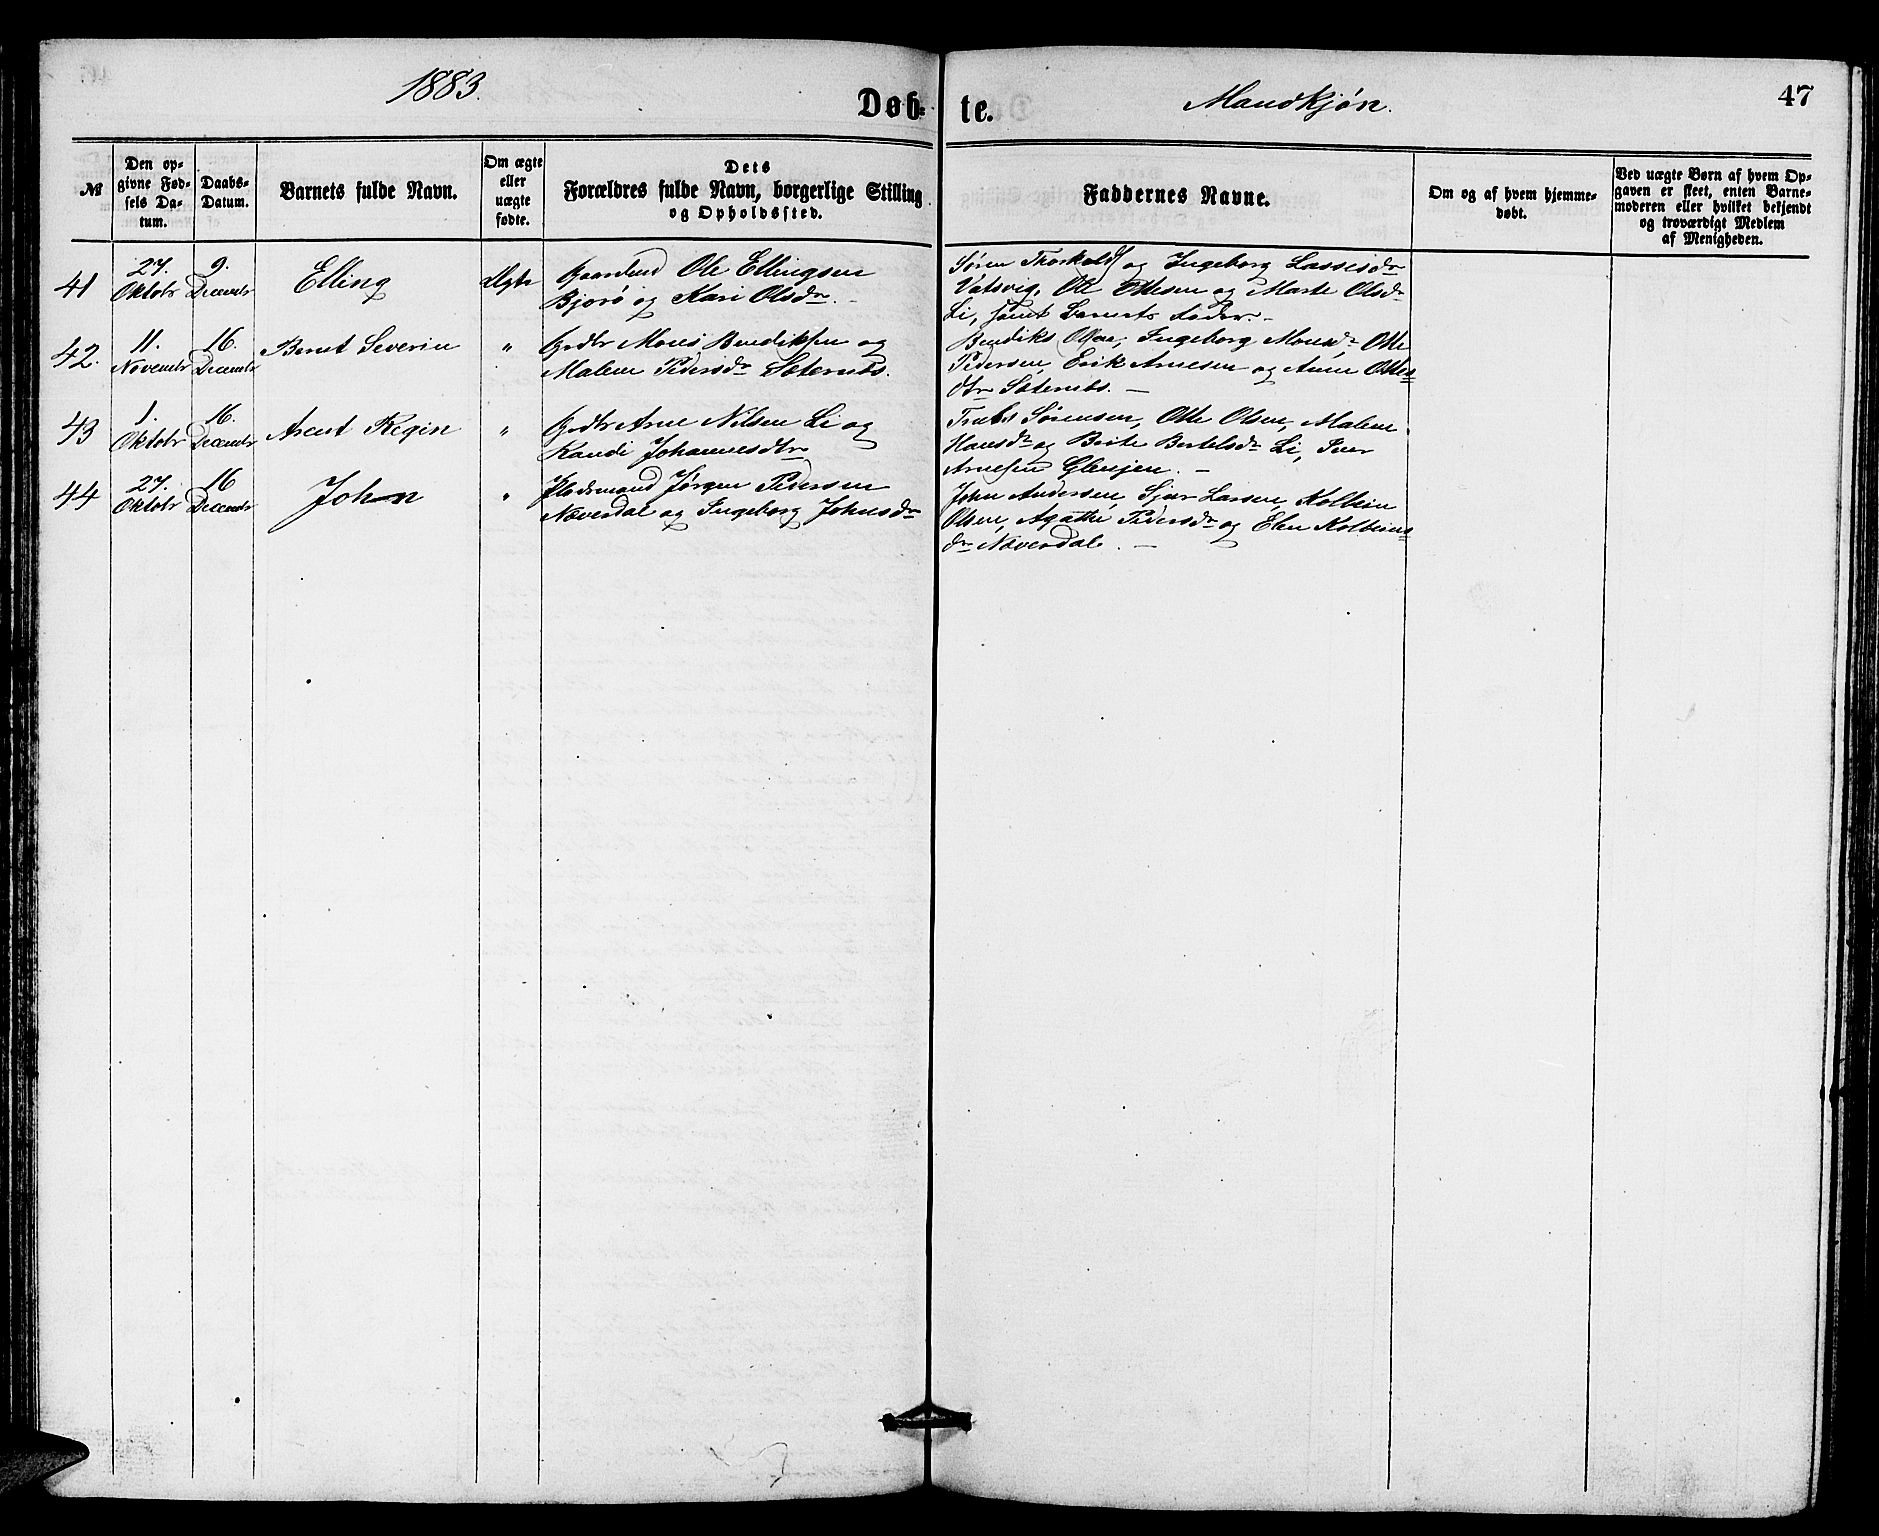 1883.
Døb-
te.
Mandkjøn.
47
№
Den op-
givne Fød-
sels Da-
tum.
Daabs-
Datum.
Barnets fulde Navn.
Om ægte
eller
uægte
fødte.
Dets
Forældres fulde Navn, borgerlige Stilling
og Opholdssted.
Faddernes Navne.
Om og af hvem hjemme-
døbt.
Ved uægte Børn af hvem Op-
gaven er skeet, enten Barne-
moderen eller hvilket bekjendt
og troværdigt Medlem
af Menigheden.
41
27.
Oktobr
9.
Decembr
Elling
Ægte
Ole Ellingsen
Bjorø og Kari Olsdr. -
Søren Thorkelds og Ingeborg Lassesdr
Vatsvig, Ole Ottesen og Marte Olsdr
Li, samt Barnets Fader. -
42.
11.
Novembr
16.
Decembr
Bernt Severin
"
Grdbr Mons Bendiksen og
Malene Pedersdr Sæternes.
Bendiks Olsen, Ingeborg Monsdr Otte
Pedersen, Erik Arnesen og Anne Ottes=
dtr Sæternes. -
43
1.
Oktobr
16.
Decembr
Arent Regin
"
Grdbr Arne Nilsen Li og
Randi Johannesdtr
Sørensen, Otte Olsen, Malene
Hansdr og Berte Bertelsdr Li, Iver
Arnesen Glenjen. -
44
27.
Oktobr
16
Decembr
John
"
Pladsmand Jørgen Pedersen
Nøverdal og Ingeborg Johnsdr
John Andersen, Sjur Larsen, Kolbein
Olsen, Agathe Pedersdr og Elen Kolbeins=
dr Nøverdal. -